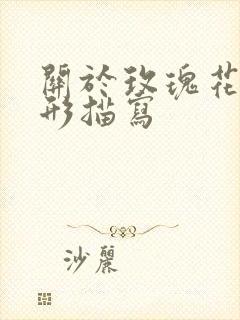 關於玫瑰花
形描寫
沙麗